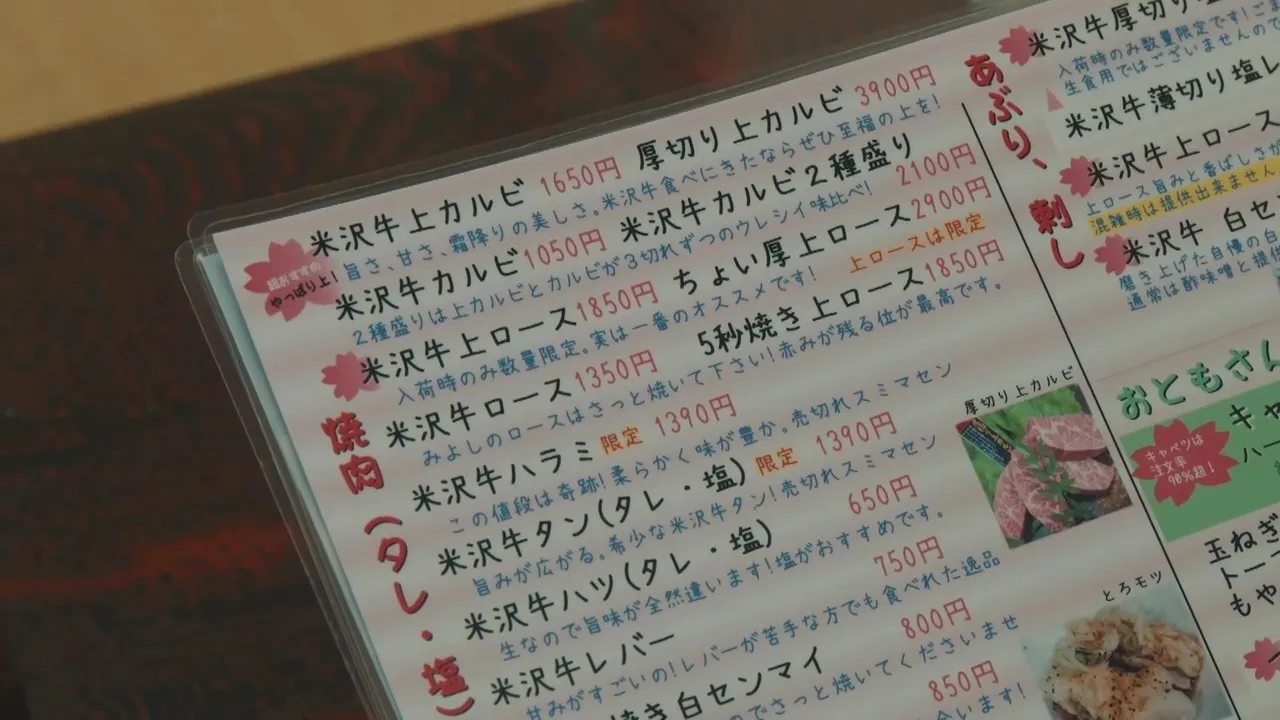 米沢牛上カルビ 1650円 厚切り上カルビ 3900円
旨さ、甘さ、霜降りの美しさ。米沢牛食べにきたならぜひ至福の上を!
超おすすめの
やっぱり上!
米沢牛カルビ 1050円 米沢牛カルビ2種盛り 2100円
2種盛りは上カルビとカルビが3切れずつのウレシイ味比べ!
米沢牛上ロース 1850円 ちょい厚上ロース 2900円
入荷時のみ数量限定。実は一番のオススメです! 上ロースは限定
米沢牛ロース 1350円 5秒焼き上ロース 1850円
みよしのロースはさっと焼いて下さい!赤みが残る位が最高です。
米沢牛ハラミ 限定 1390円
この値段は奇跡!柔らかく味が豊か。売切れスミマセン
米沢牛タン(タレ・塩) 限定 1390円
旨みが広がる。希少な米沢牛タン!売切れスミマセン
米沢牛ハツ(タレ・塩) 650円
生なので旨味が全然違います!塩がおすすめです。
米沢牛レバー 750円
甘みがすごいの!レバーが苦手な方でも食べれた逸品
焼き白センマイ 800円
のでさっと焼いてくださいませ
850円
合います!
焼肉(タレ・塩)
厚切り上カルビ
とろモツ
あぶり、刺し
米沢牛厚切り
入荷時のみ数量限定です!
生食用ではございませんので
米沢牛薄切り塩レ
米沢牛上ロース
上ロース旨みと香ばしさが
混雑時は提供出来ません
米沢牛 白セ
磨き上げた自慢の白
通常は酢味噌と提供
おともさん
キャ
ハー
キャベツは
注文率
90%超!
玉ねぎ
トー
もや